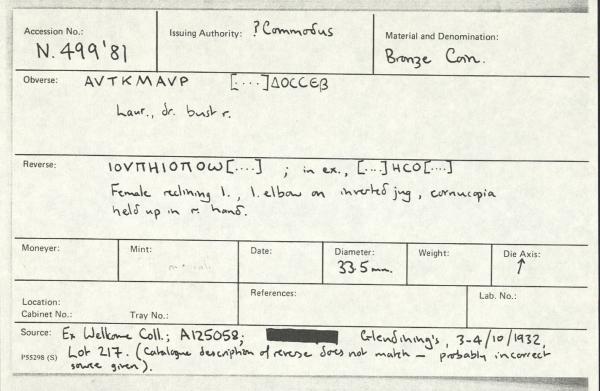 Accession No.: Issuing Authority: ?Commodus Material and Denomination:
N. 499'81 Bronze Coin.
Obverse: ΑVΤΚΜΑVΡ [....]ΔΟCCΕβ
Laur., dr. bust r.
Reverse: ΙΟVΠΗΙΟΠΟω[....] ; in ex., [...]ΗCΟ[....]
Female reclining l., l. elbow on inverted jug, cornucopia
held up in r. hand.
Moneyer: Mint: Date: Diameter: Weight: Die Axis:
33.5 mm. ↑
Location: References: Lab. No.:
Cabinet No.: Tray No.:
Source: Ex Wellcome Coll.; A125058; Glendining's, 3-4/10/1932,
P55298 (S) Lot 217. (Catalogue description of reverse does not match – probably incorrect
source given).